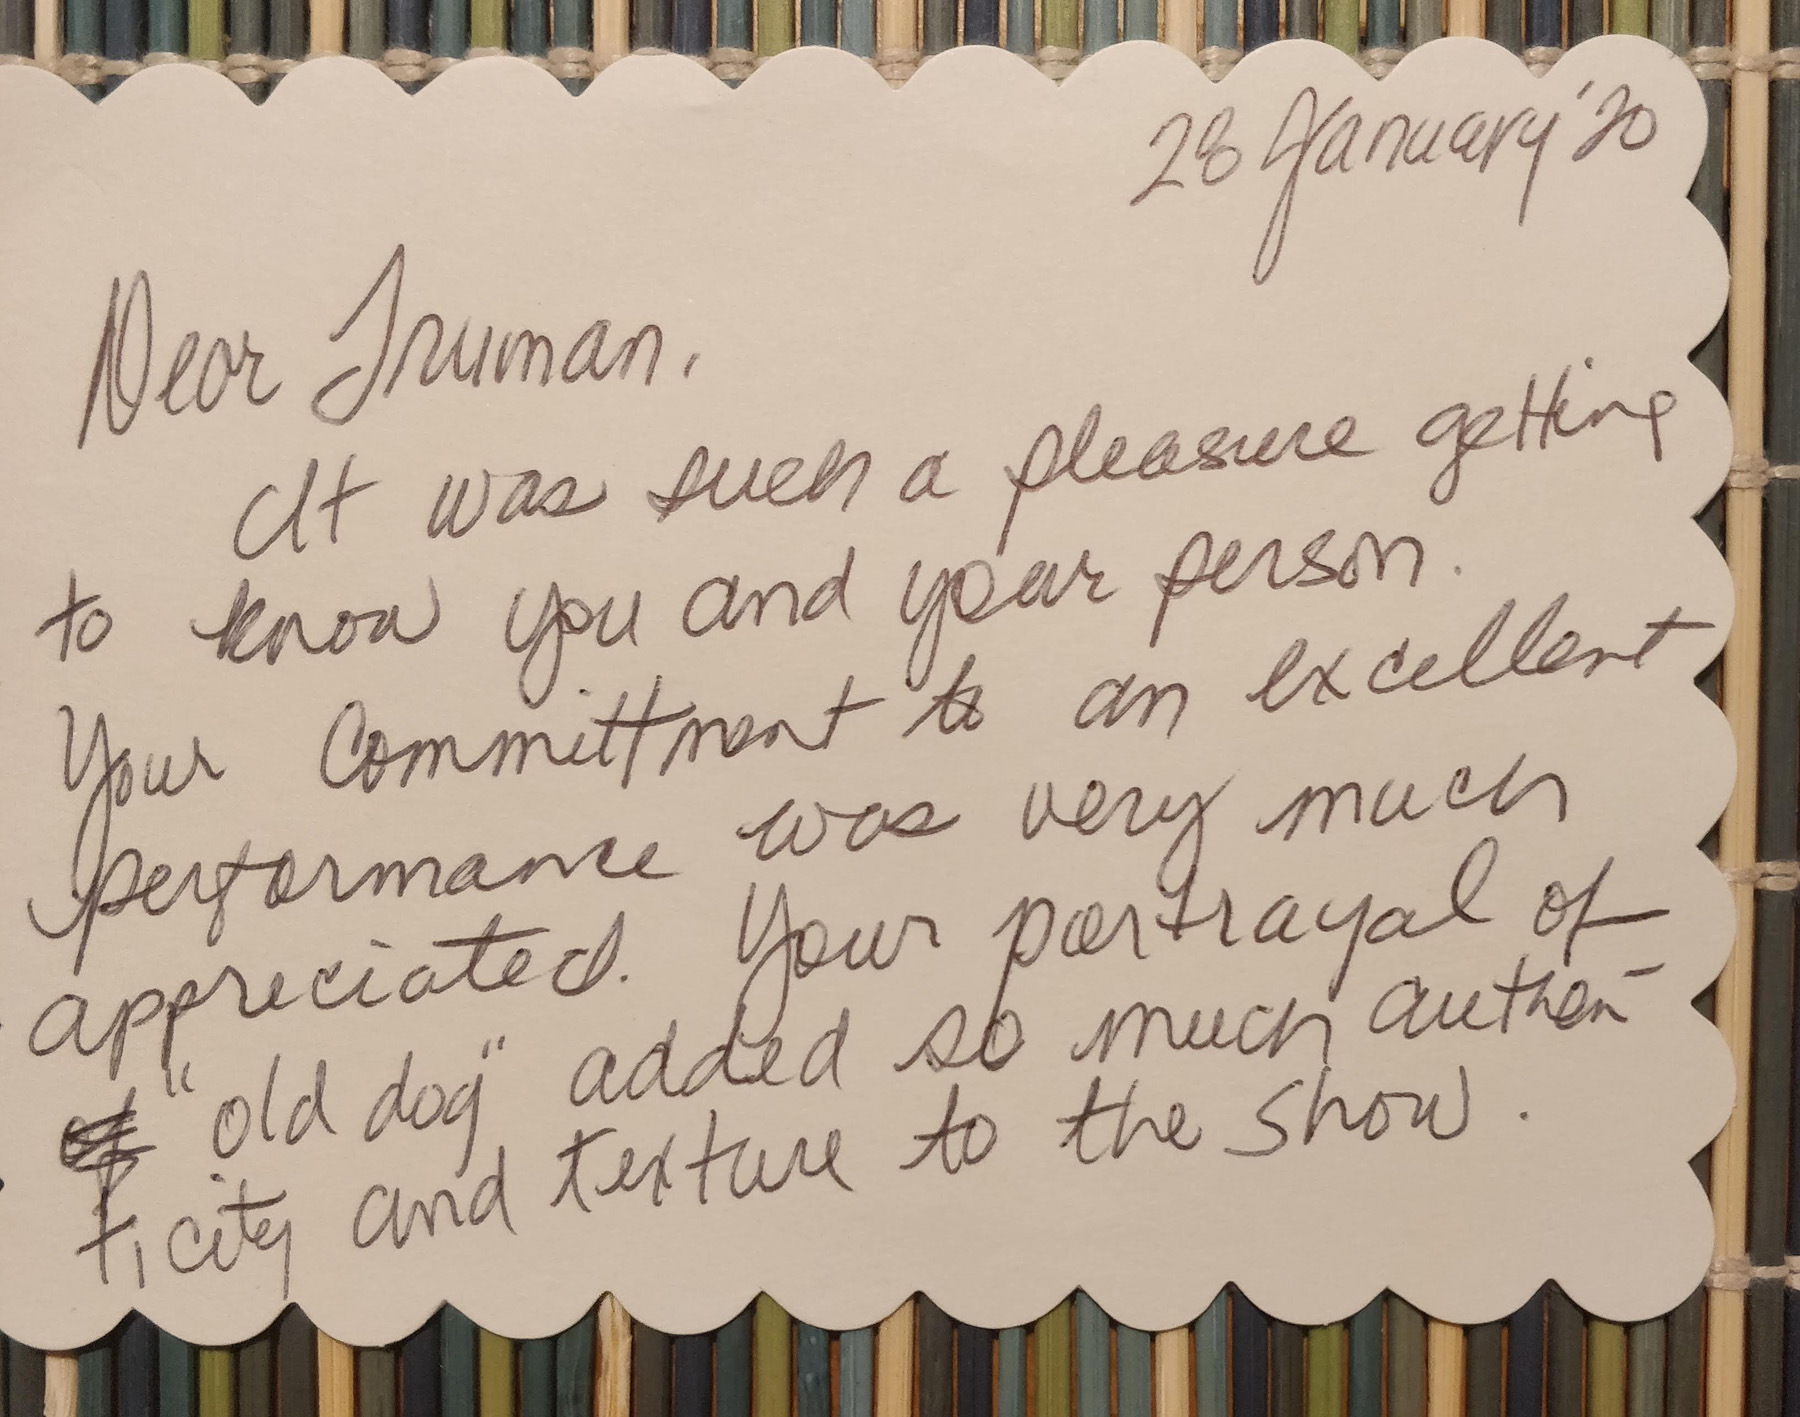 28 January '20
Dear Truman,
It was such a pleasure getting
to know you and your person.
Your Committment to an excellent
performance was very much
appreciated. Your portrayal of
"old dog" added so much authen-
ticity and texture to the show.